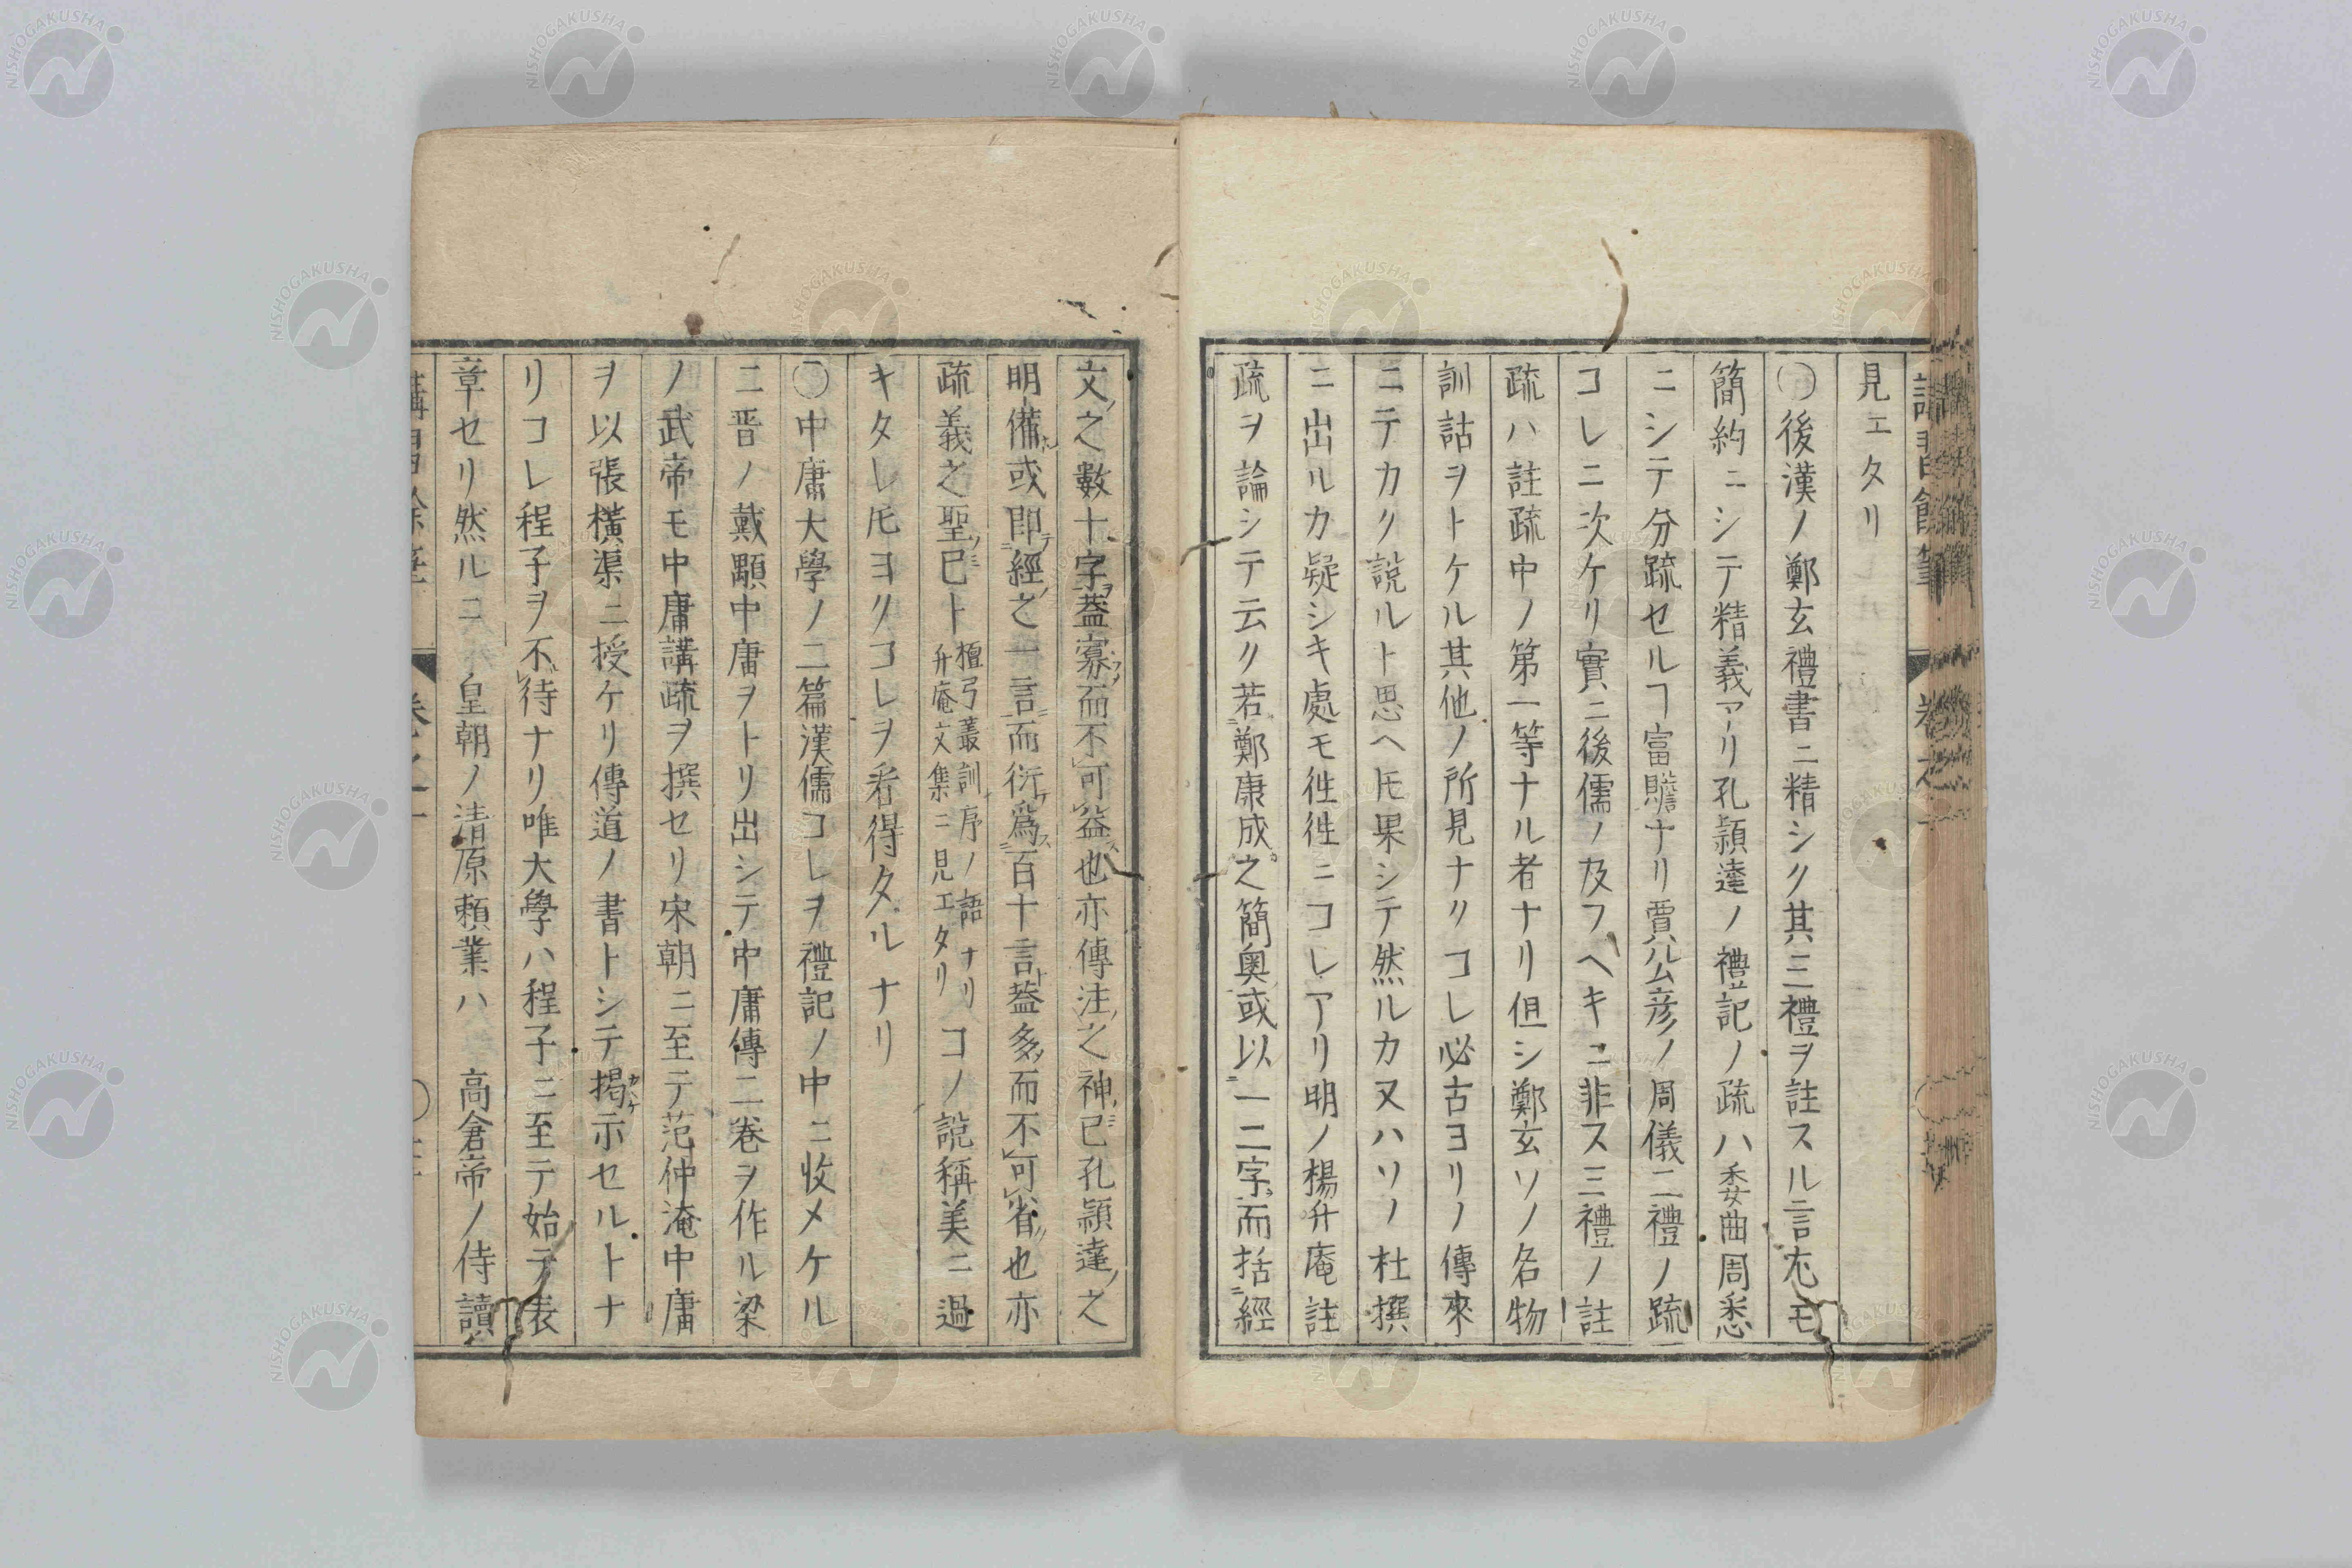 見エタリ
〇後漢ノ鄭玄禮書ニ精シク其三禮ヲ註スル言尤モ
簡約ニシテ精義アリ孔頴達ノ禮記ノ疏ハ委曲周悉
ニシテ分疏セルヿ富贍ナリ賈公彦ノ周儀二禮ノ疏
コレニ次ケリ實ニ後儒ノ及フヘキニ非ス三禮ノ註
疏ハ註疏中ノ第一等ナル者ナリ但シ鄭玄ソノ名物
訓詁ヲトケル其他ノ所見ナクコレ必古ヨリノ傳來
ニテカク説ルト思ヘ𪜈果シテ然ルカ又ハソノ杜撰
ニ出ルカ疑シキ處モ徃徃ニコレアリ明ノ楊升庵註
疏ヲ論シテ云ク若鄭康成之簡奥或以一二字而括經
文之數十字葢寡而不可益也亦傳注之神已孔頴達之
明備或即經之一言而衍爲百十言葢多而不可省也亦
疏義之聖已ト檀弓叢訓序ノ語ナリ升庵文集ニ見エタリコノ説稱美ニ過
キタレ𪜈ヨクコレヲ看得タルナリ
〇中庸大學ノ二篇漢儒コレヲ禮記ノ中ニ收メケル
ニ晋ノ戴顒中庸ヲトリ出シテ中庸傳二卷ヲ作ル梁
ノ武帝モ中庸講疏ヲ撰セリ宋朝ニ至テ范仲淹中庸
ヲ以張橫渠ニ授ケリ傳道ノ書トシテ掲示セルトナ
リコレ程子ヲ不待ナリ唯大學ハ程子ニ至テ始テ表
章セリ然ルニ 皇朝ノ清原頼業ハ 高倉帝ノ侍讀